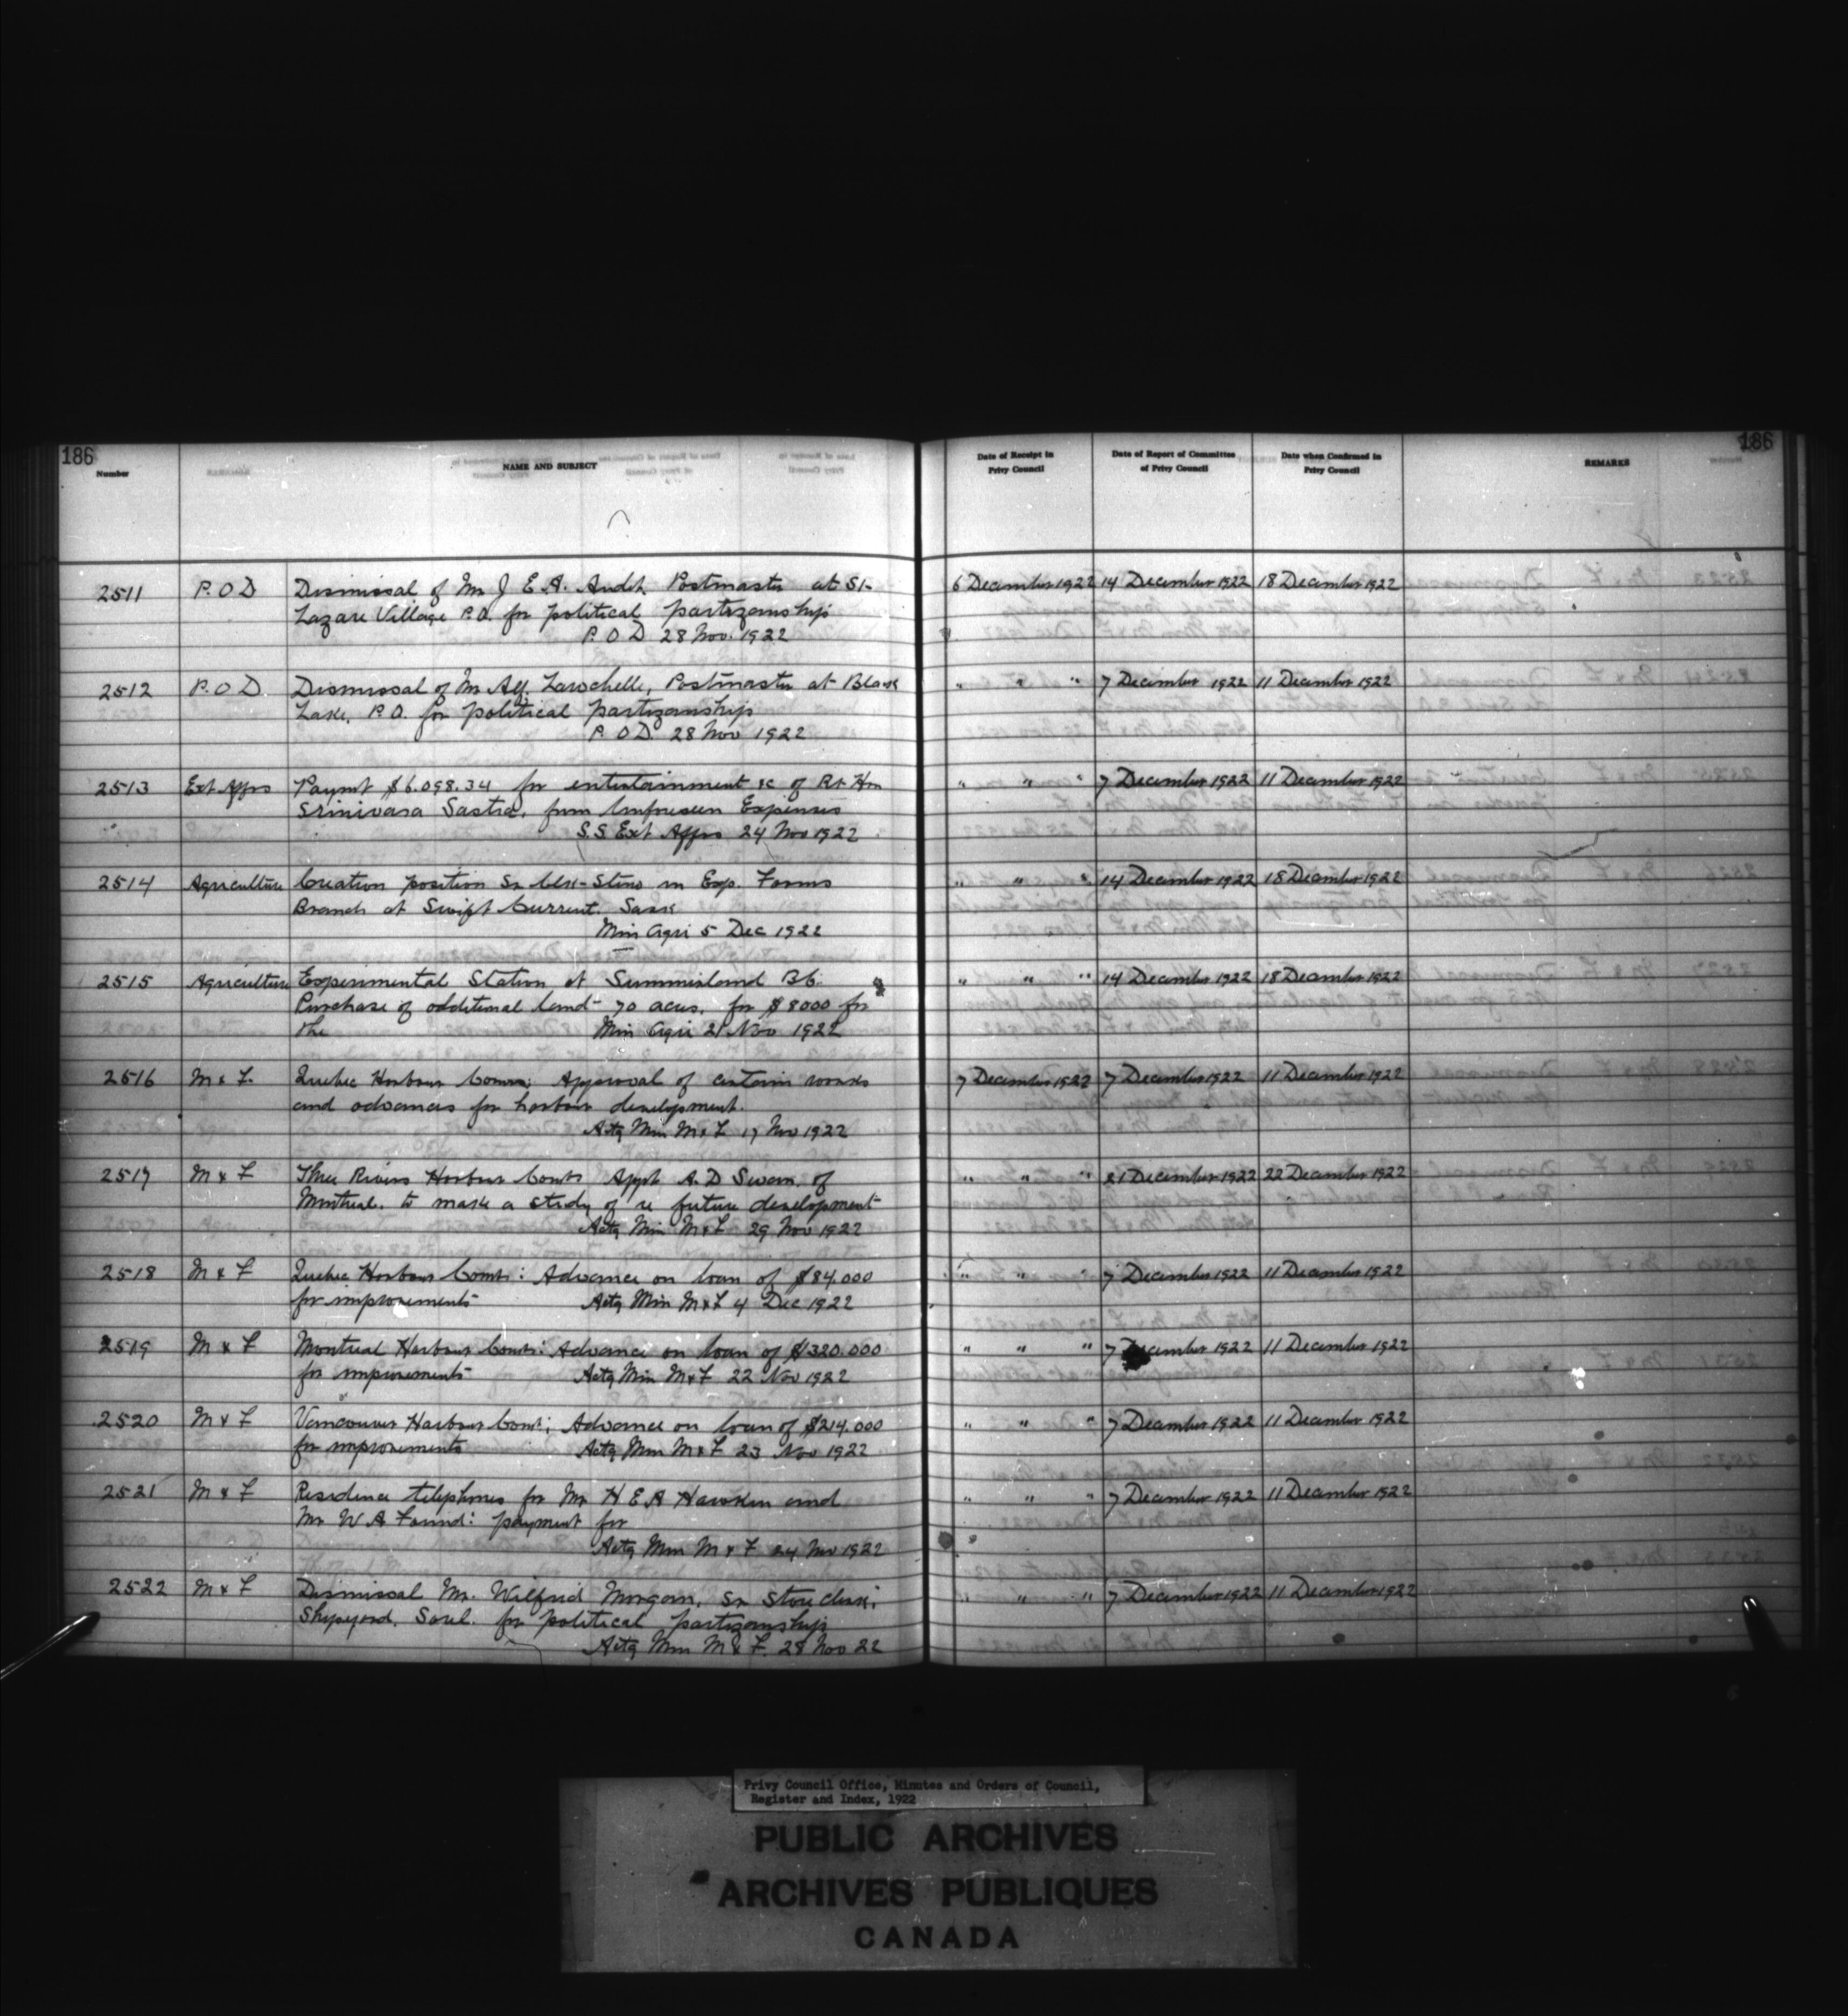 186
186
Number
NAME AND SUBJECT
Date of Receipt in Privy Council
Date of Report of Committee of Privy Council
Date when Confirmed in Privy Council
REMARKS
2511 P.O.D Dismissal of Mr J E.A. Audet Postmaster at St- 6 December 1922 14 December 1922 18 December 1922
Lazare Village P.O. for political partizanship
P.O.D 28 Nov. 1922
2512 P.O.D. Dismissal of Mr Alf. Larochelle, Postmaster at Black " " " 7 December 1922 11 December 1922
Lake, P.O. for political partizanship
P.O.D. 28 Nov 1922
2513 Ext Affrs Paymt $6.098.34 for entertainment &c of Rt Hon " " " 7 December 1922 11 December 1922
Srinivasa Sastri, from Unforeseen Expenses
S.S Ext Affrs 24 Nov 1922
2514 Agriculture Creation position Sr Clk-Steno in Exp. Farms " " " 14 December 1922 18 December 1922
Branch at Swift Current. Sask
Min Agri 5 Dec 1922
2515 Agriculture Experimental Station at Summerland B C. " " " 14 December 1922 18 December 1922
Purchase of additional land- 70 acres, for $8000 for
the Min Agri 21 Nov 1922
2516 M & F. Quebec Harbour Comrs; Approval of certain works 7 December 1922 7 December 1922 11 December 1922
and advances for harbour development.
Actg Min M & F 17 Nov 1922
2517 M & F Three Rivers Harbour Comrs Appt A. D Swan, of " " " 21 December 1922 22 December 1922
Montreal, to make a study of re future development
Actg Min M & F 29 Nov 1922
2518 M & F Quebec Harbour Comrs: Advance on loan of $84.000 " " " 7 December 1922 11 December 1922
for improvements Actg Min M & F 4 Dec 1922
2519 M & F Montreal Harbour Comrs: Advance on loan of $320.000 " " " 7 December 1922 11 December 1922
for improvements Actg Min M & F 22 Nov 1922
2520 M & F Vancouver Harbour Comrs; Advance on loan of $214.000 " " " 7 December 1922 11 December 1922
for improvements Actg Min M & F 23 Nov 1922
2521 M & F Residence telephones for Mr H E A Hawken and " " " 7 December 1922 11 December 1922
Mr W A Found: payment for
Actg Min M & F 24 Nov 1922
2522 M & F Dismissal Mr. Wilfrid Morgan, Sr Store clerk, " " " 7 December 1922 11 December 1922
Shipyard, Sorel. for political partizanship
Actg Min M & F. 28 Nov 22
Privy Council Office, Minutes and Orders of Council,
Register and Index, 1922
PUBLIC ARCHIVES
ARCHIVES PUBLIQUES
CANADA